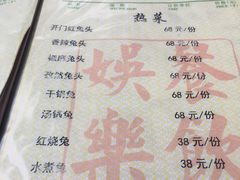 热菜
开门红兔头 68 元/份
香辣兔头 68 元/份
椒麻兔头 68 元/份
孜然兔头 68 元/份
干锅兔 68 元/份
汤锅兔 68 元/份
红烧兔 38 元/份
水煮兔 38 元/份
娱乐